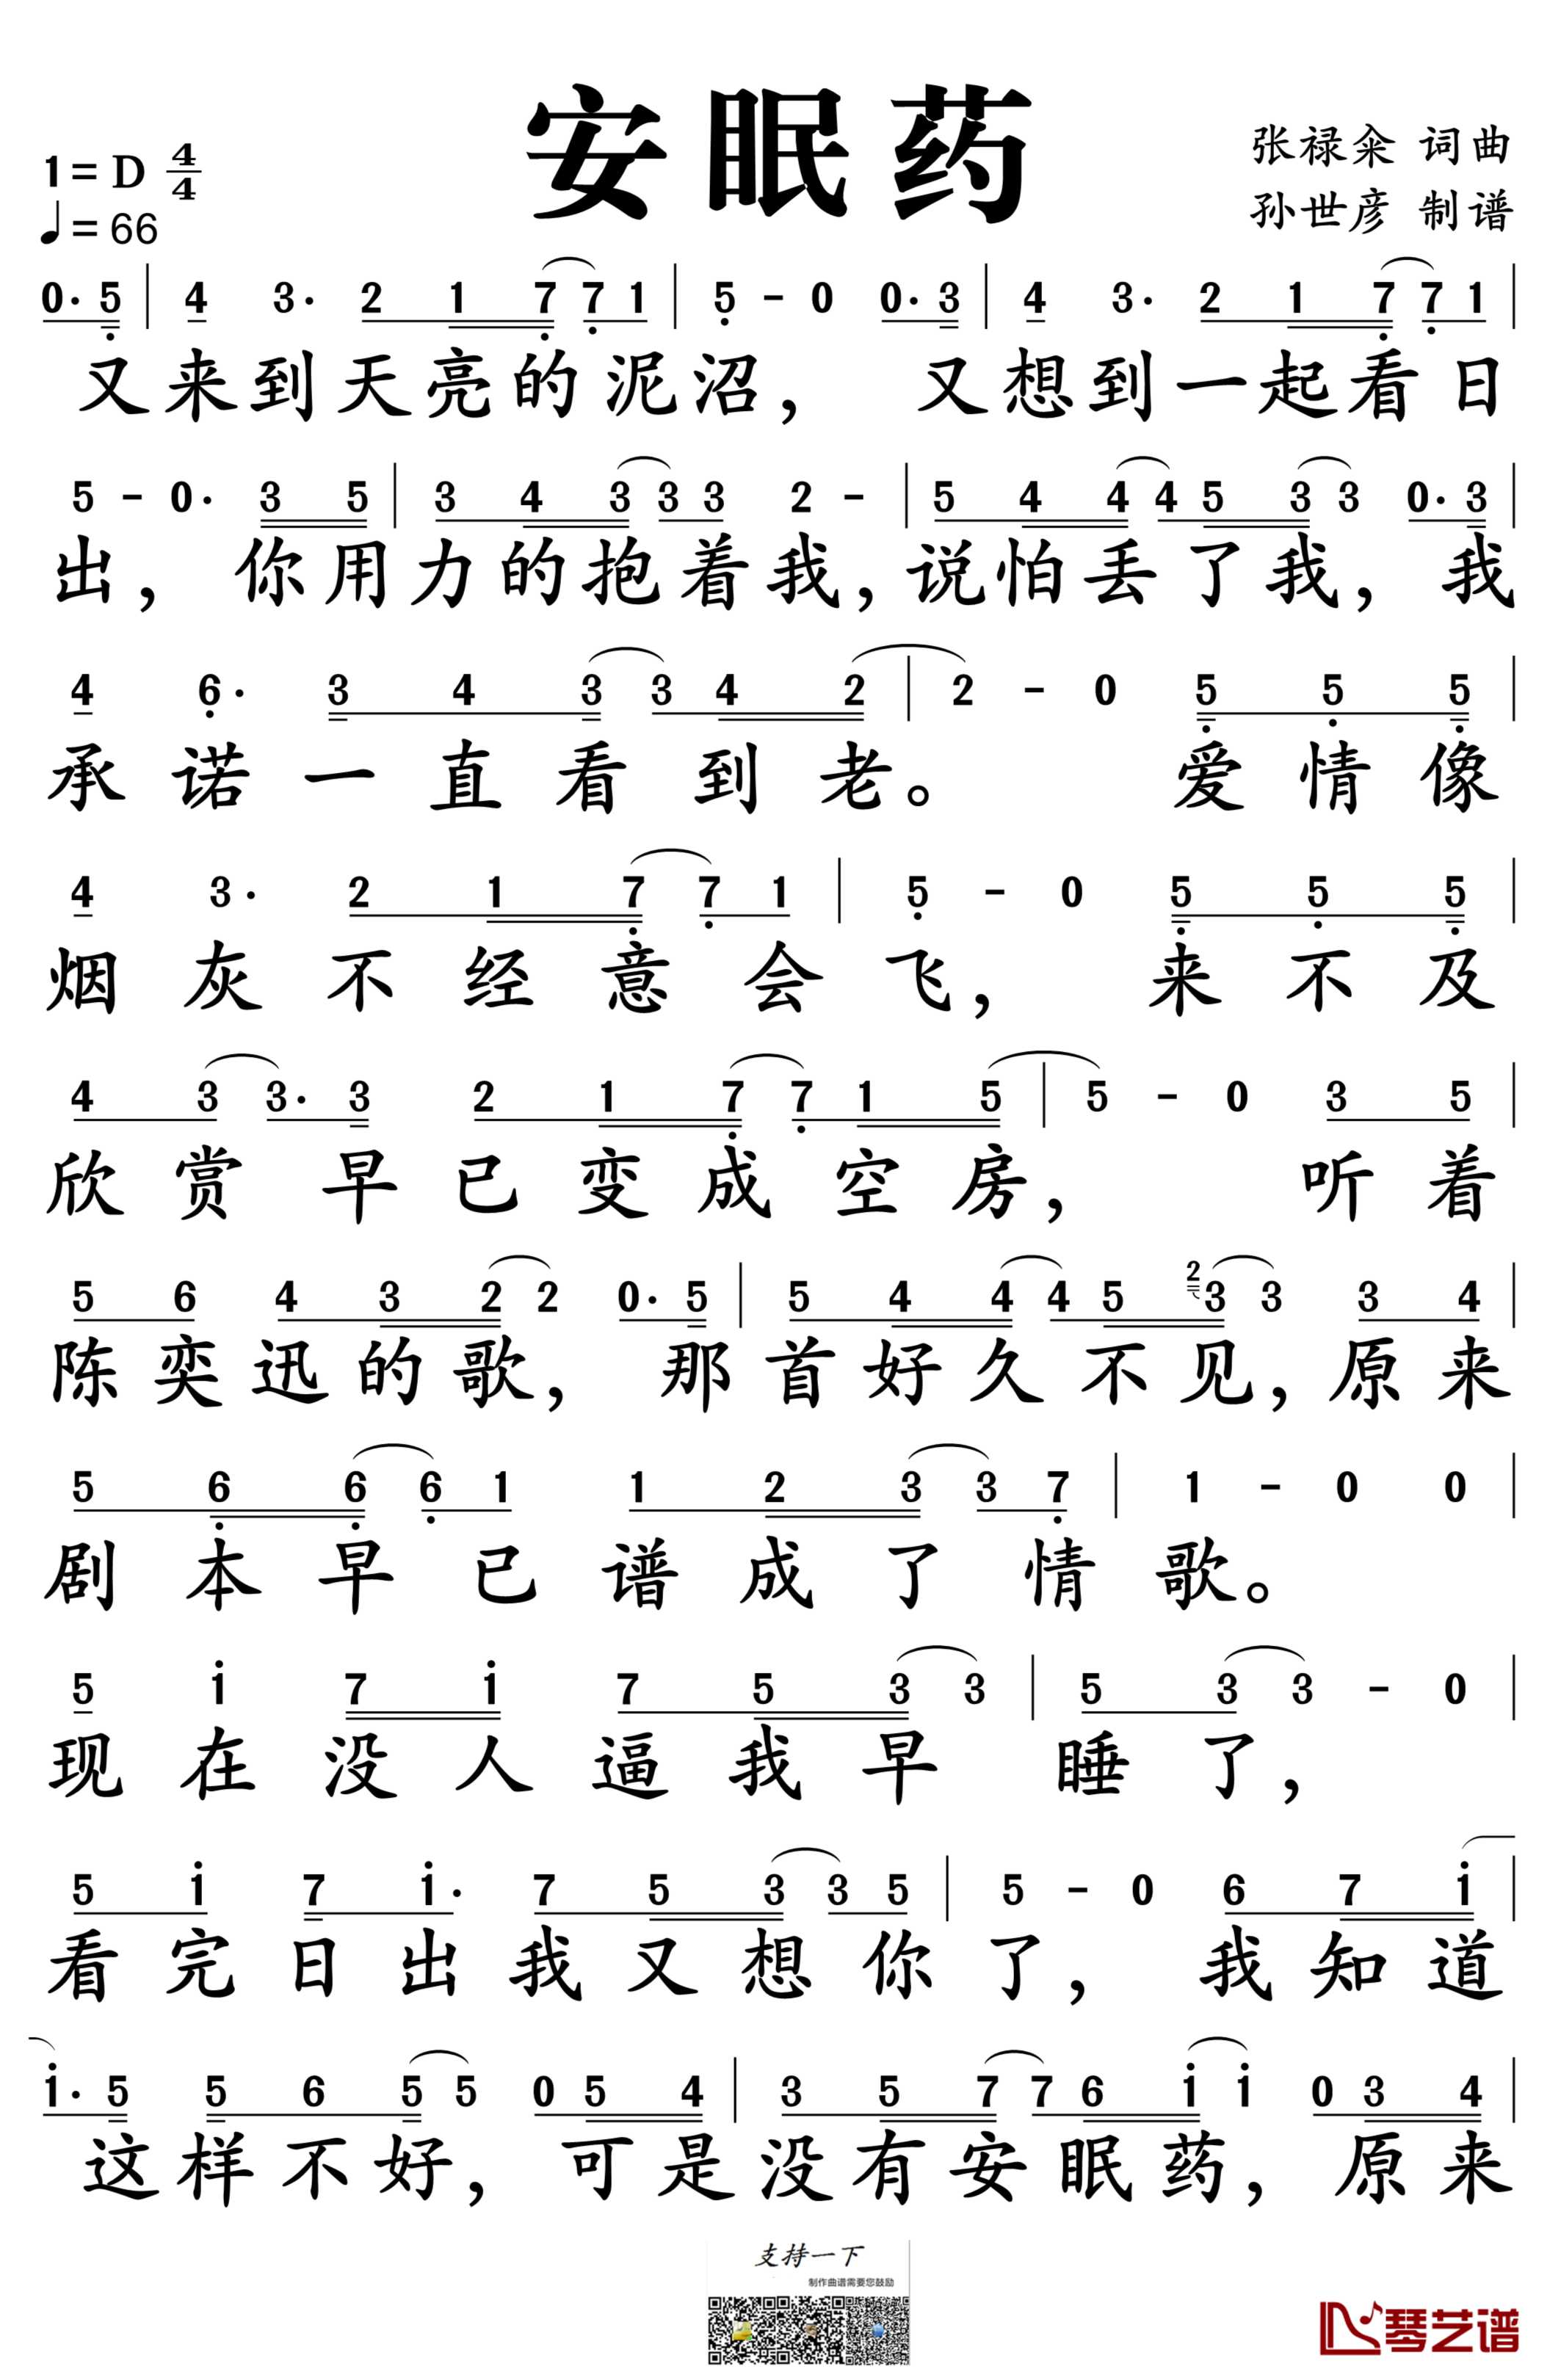 安眠药
1=D 4/4
♩=66
张禄籴 词曲
孙世彦 制谱
0· 5 | 4 3· 2 1 7 7 1 | 5 - 0 0· 3 | 4 3· 2 1 7 7 1 |
又来到天亮的泥沼， 又想到一起看日
5 - 0· 3 5 | 3 4 3 3 3 2 - | 5 4 4 4 5 3 3 0· 3 |
出， 你用力的抱着我，说怕丢了我， 我
4 6· 3 4 3 3 4 2 | 2 - 0 5 5 5 |
承诺一直看到老。 爱情像
4 3· 2 1 7 7 1 | 5 - 0 5 5 5 |
烟灰不经意会飞， 来不及
4 3 3· 3 2 1 7 7 1 5 | 5 - 0 3 5 |
欣赏早已变成空房， 听着
5 6 4 3 2 2 0· 5 | 5 4 4 4 5 2 3 3 3 4 |
陈奕迅的歌， 那首好久不见，原来
5 6 6 6 1 1 2 3 3 7 | 1 - 0 0 |
剧本早已谱成了情歌。
5 i 7 i 7 5 3 3 | 5 3 3 - 0 |
现在没人逼我早 睡了，
5 i 7 i· 7 5 3 3 5 | 5 - 0 6 7 i |
看完日出我又想你了， 我知道
i· 5 5 6 5 5 0 5 4 | 3 5 7 7 6 i i 0 3 4 |
这样不好， 可是没有安眠药， 原来
支持一下
制作曲谱需要您鼓励
琴艺谱